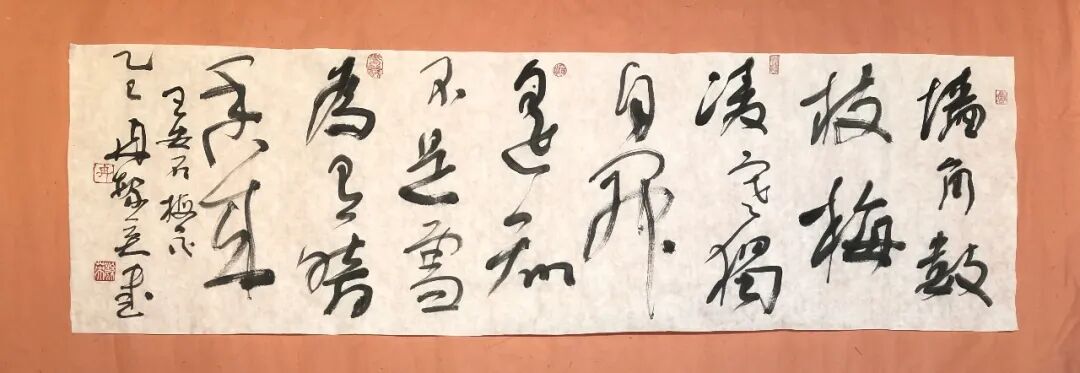 墙角数
枝梅
凌寒獨
自开
遥知
不是雪
為有暗
香来
王安石梅花
乙巳冉 书